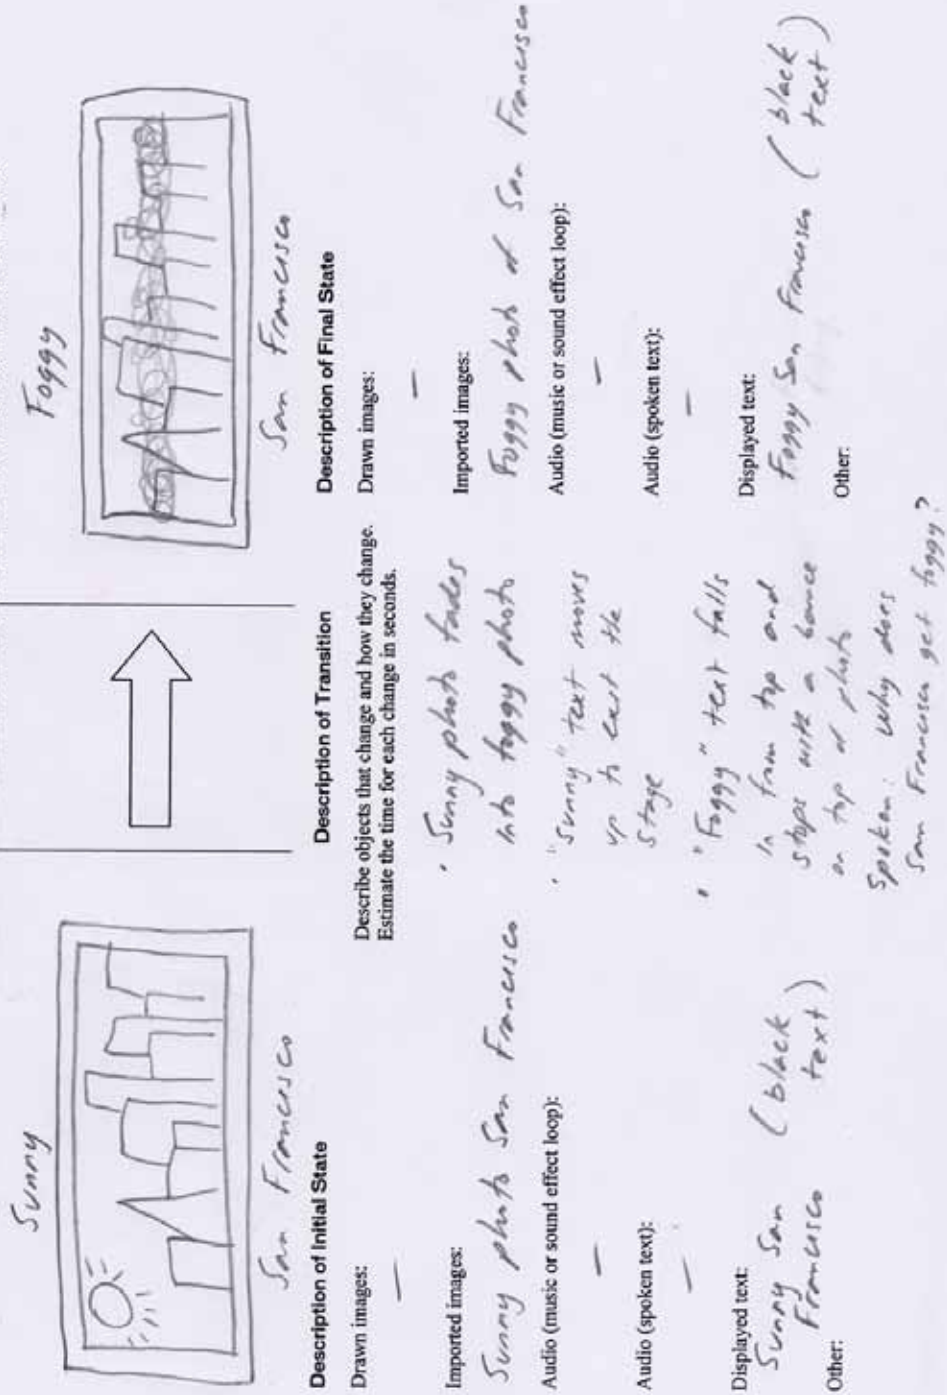 Sunny
San Francisco
Description of Initial State
Drawn images:
—
Imported images:
Sunny photo San Francisco
Audio (music or sound effect loop):
—
Audio (spoken text):
—
Displayed text:
Sunny San (black
Francisco text)
Other:
Description of Transition
Describe objects that change and how they change.
Estimate the time for each change in seconds.
• Sunny photo fades
into foggy photo
• "Sunny" text moves
up to exit the
stage
• "Foggy" text falls
in from top and
stops with a bounce
on top of photo
Spoken: Why does
San Francisco get foggy?
Foggy
San Francisco
Description of Final State
Drawn images:
—
Imported images:
Foggy photo of San Francisco
Audio (music or sound effect loop):
—
Audio (spoken text):
—
Displayed text:
Foggy San Francisco (black
text)
Other: